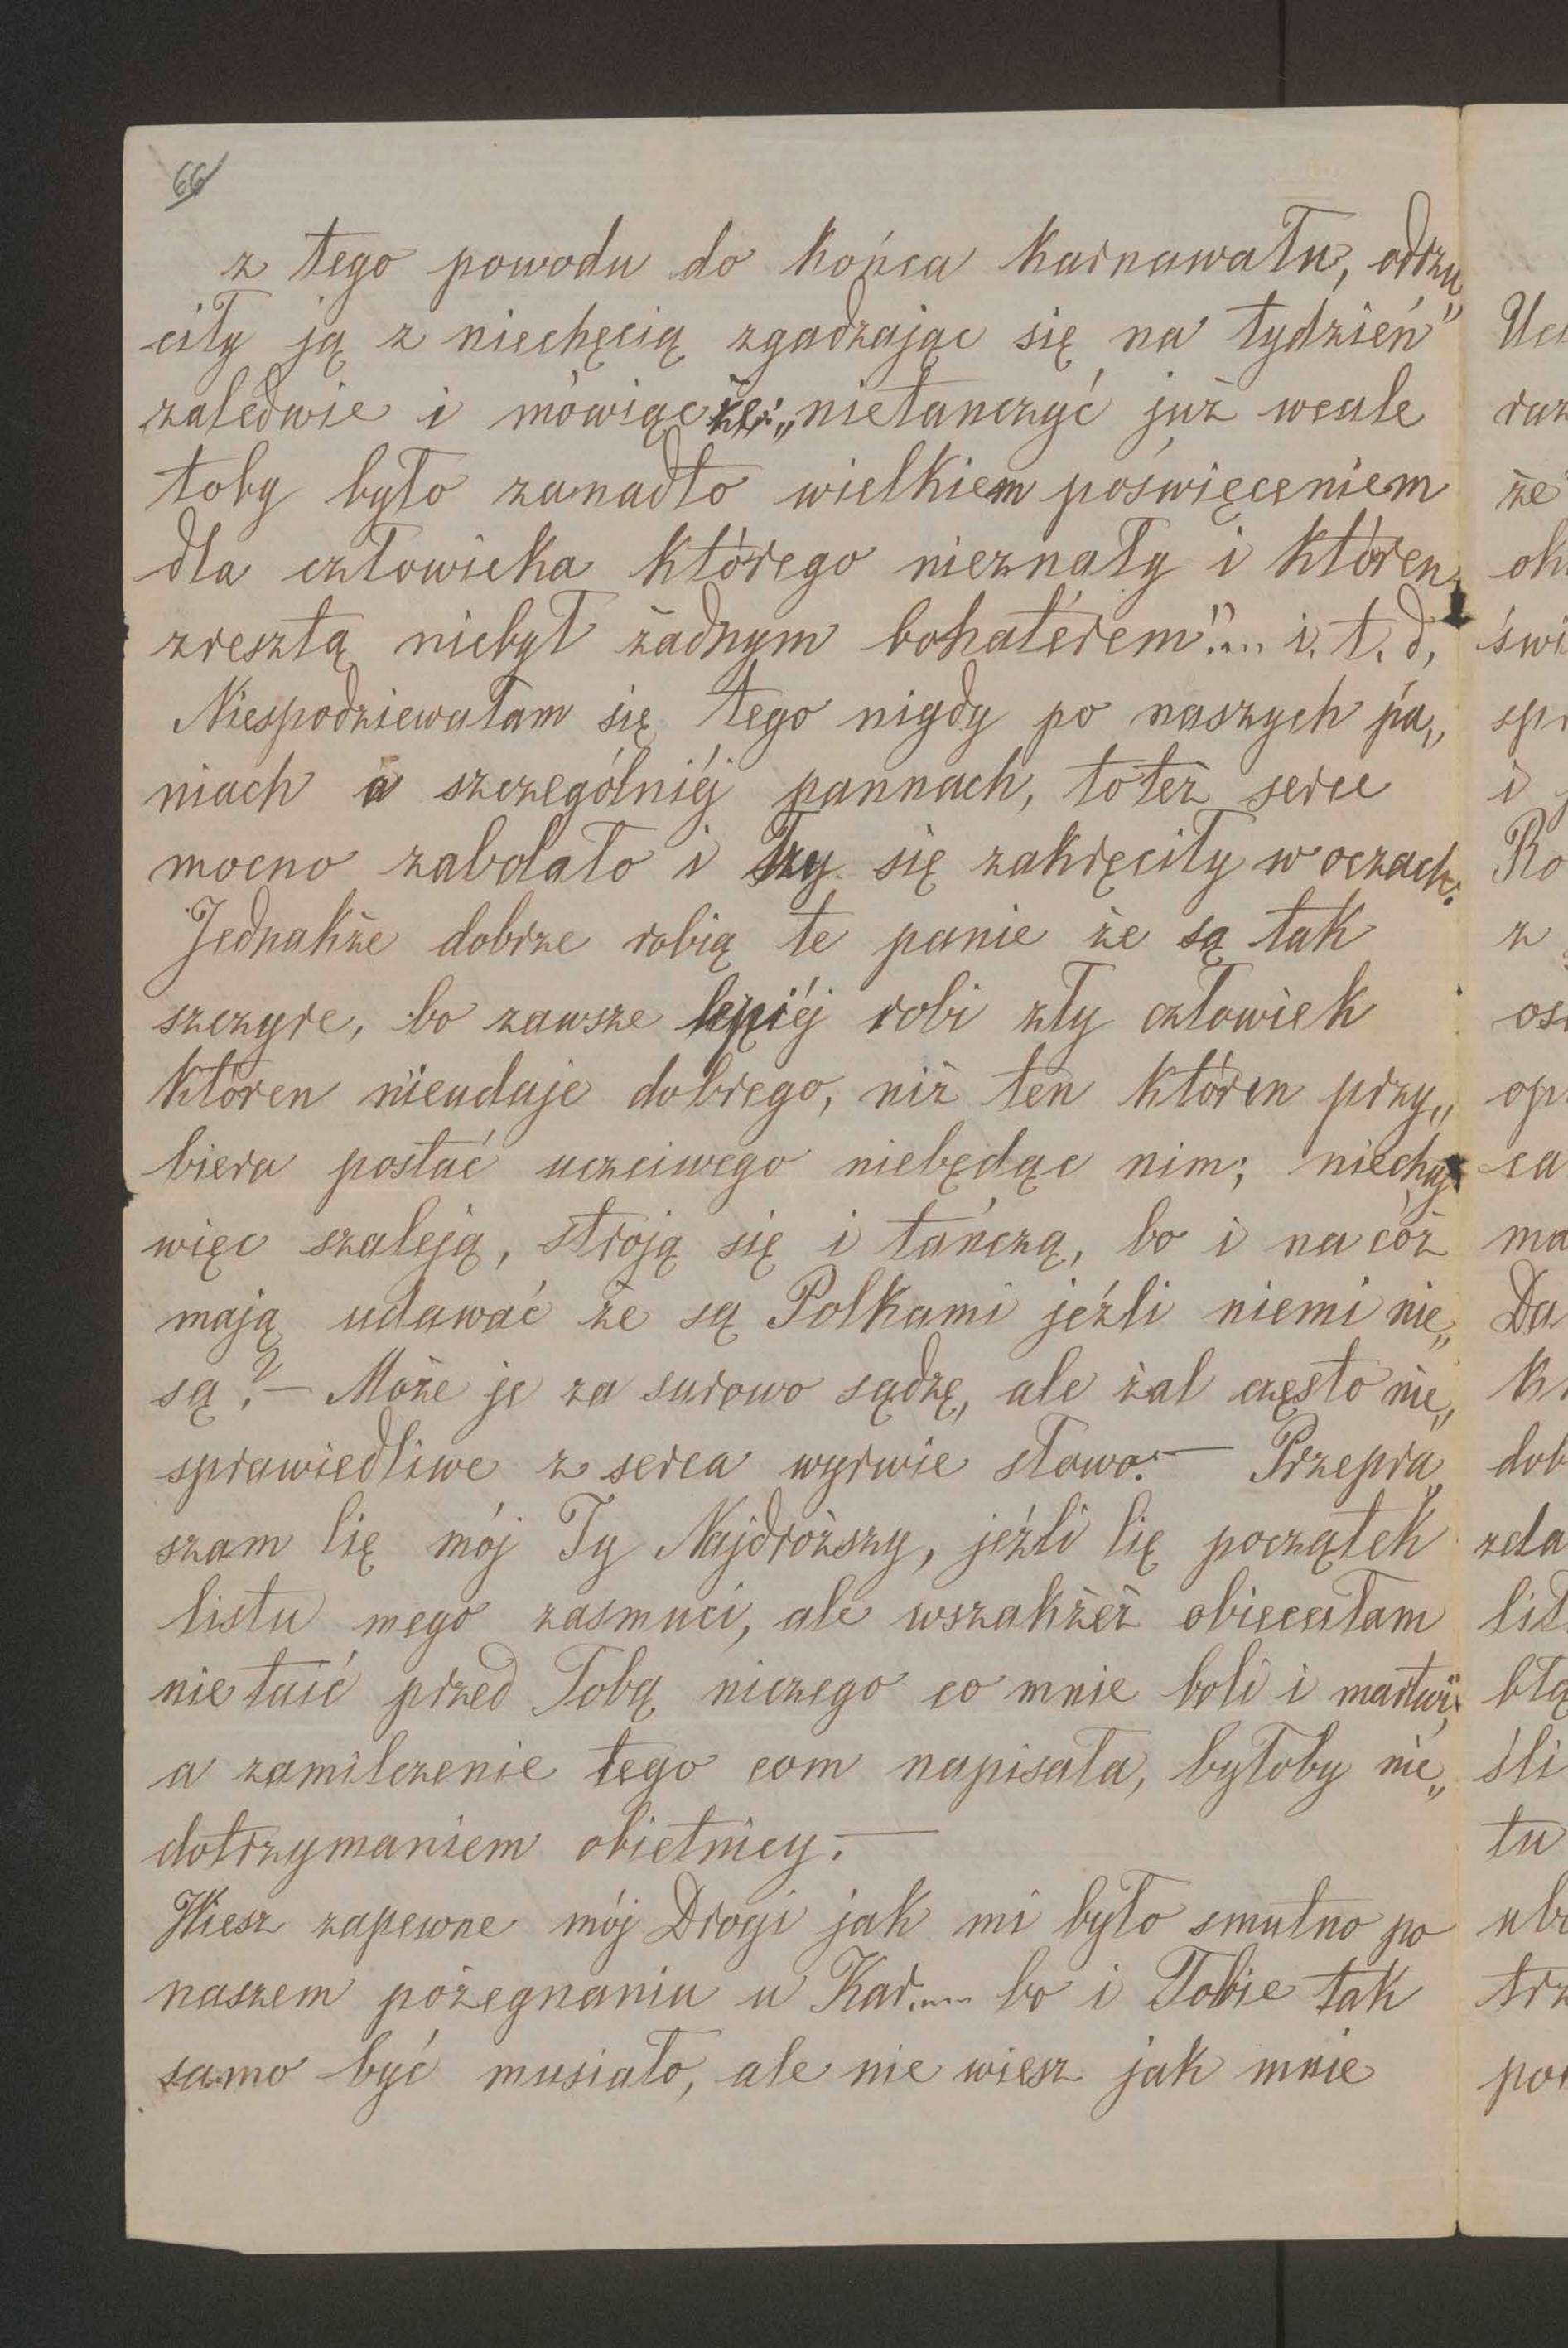 66
z tego powodu do końca karnawału, odrzu„
ciły ją z niechęcią zgadzając się na tydzień
zaledwie i mówiąc że: „nietanczyć już wcale
toby było zanadto wielkiem poświęceniem
dla człowieka którego nieznały i któren
zresztą niebył żadnym bohaterem".... i. t. d,
Niespodziewałam się tego nigdy po naszych pa„
niach a szczególniéj pannach, toteż serce
mocno zabolało i łzy się zakręciły w oczach.
Jednakże dobrze robią te panie że są tak
szczyre, bo zawsze lepiéj robi zły człowiek
któren nieudaje dobrego, niż ten któren przy„
biera postać uczciwego niebędąc nim; niechaj
więc szaleją, stroją się i tańczą, bo i na cóż
mają udawać że są Polkami jeźli niemi nie„
są? — Może je za surowo sądzę, ale żal często nie„
sprawiedliwe z serca wyrwie słowo. — Przepra„
szam Cię mój Ty Najdroższy, jeźli Cię początek
listu mego zasmuci, ale wszakżeż obiecałam
nie taić przed Tobą niczego co mnie boli i martwi,
a zamilczenie tego com napisała, byłoby nie„
dotrzymaniem obietnicy. —
Wiesz zapewne mój Drogi jak mi było smutno po
naszem pożegnaniu u Kar.... bo i Tobie tak
samo być musiało, ale nie wiesz jak mnie